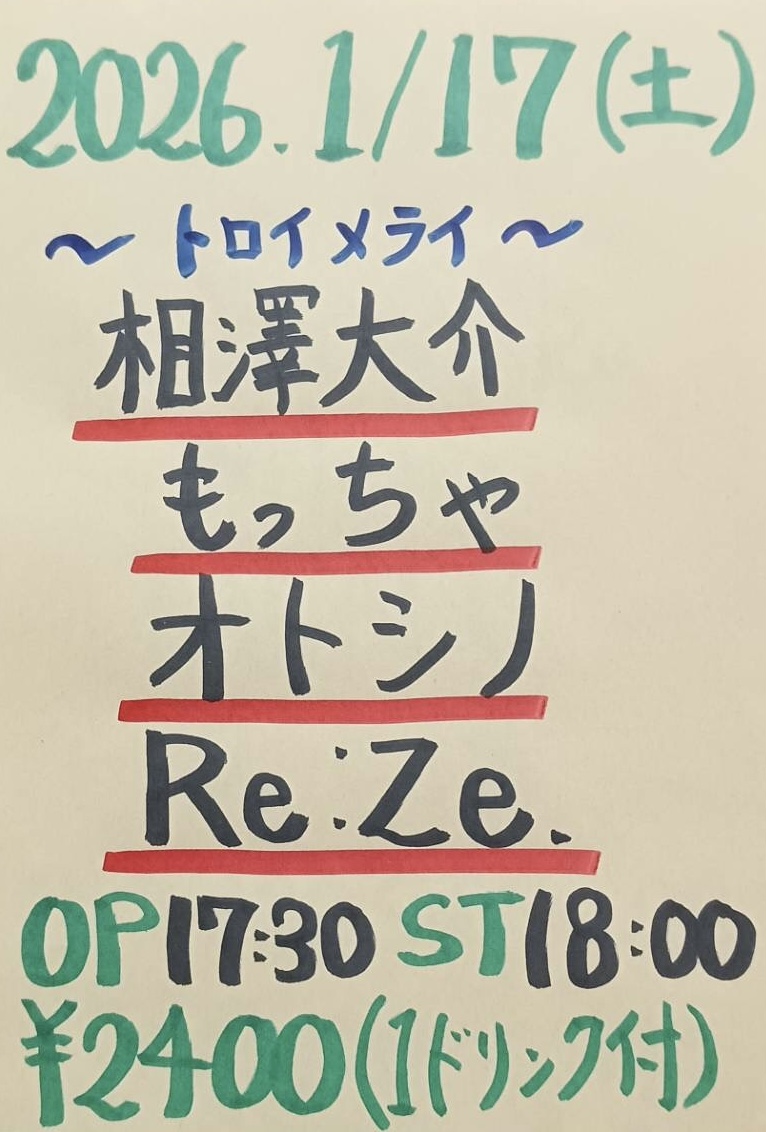 2026.1/17(土)
～トロイメライ～
相澤大介
もっちゃ
オトシノ
Re:Ze.
OP17:30 ST18:00
¥2400(1ドリンク付)